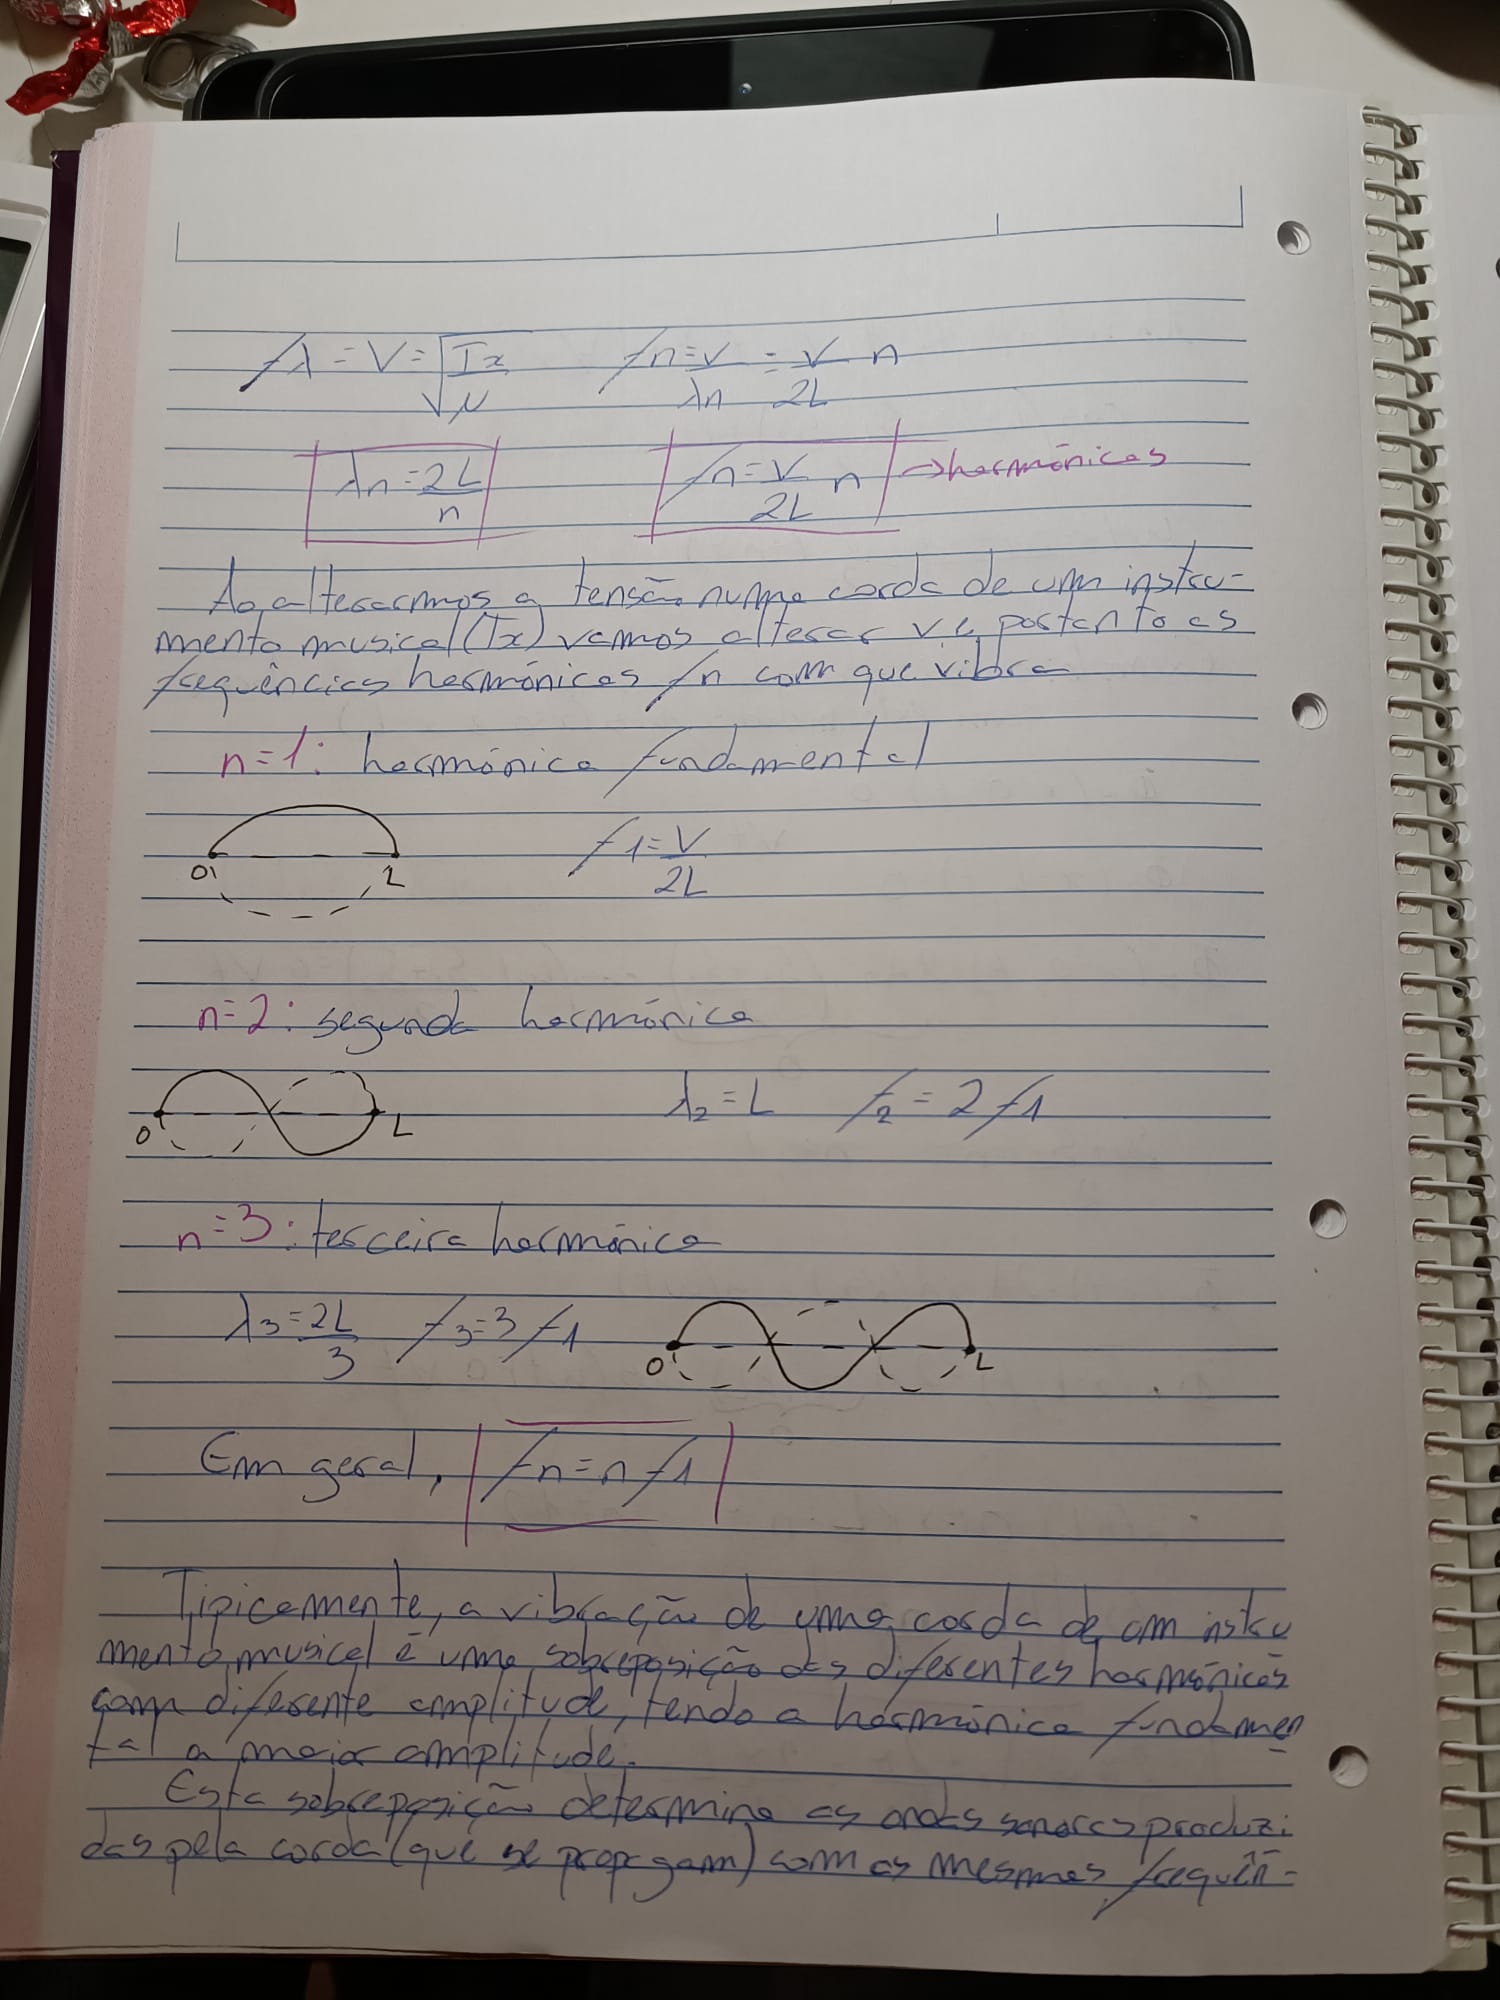 fλ = V = √(Tx/μ) fn = V/λn = V/2L n
λn = 2L/n fn = V/2L n → harmónicas
Ao alterarmos a tensão numa corda de um instru-
mento musical (Tx) vamos alterar v e, portanto as
frequências harmónicas fn com que vibra
n=1: harmónica fundamental
f1 = V/2L
0 L
n=2: segunda harmónica
λ2 = L f2 = 2 f1
0 L
n=3: terceira harmónica
λ3 = 2L/3 f3 = 3 f1
0 L
Em geral, fn = n f1
Tipicamente, a vibração de uma corda de um instru
mento musical é uma sobreposição das diferentes harmónicas
com diferente amplitude, tendo a harmónica fundamen
tal a maior amplitude.
Esta sobreposição determina as ondas sonoras produzi
das pela corda (que se propagam) com as mesmas frequên-